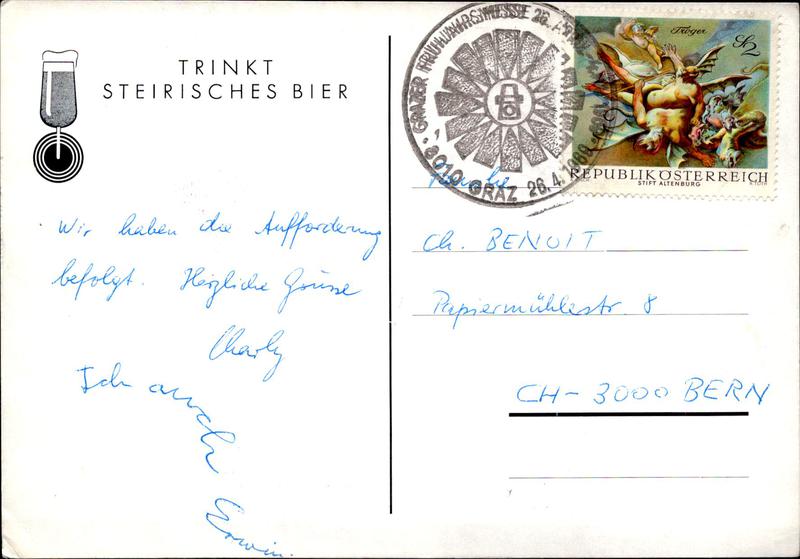 TRINKT
STEIRISCHES BIER
Wir haben die Aufforderung
befolgt. Herzliche Grüsse
Charly
Ich auch
Erwin
GRAZER FRÜHJAHRSMESSE 26.
8010 GRAZ 26.4.1969
Troger
S2
REPUBLIK ÖSTERREICH
STIFT ALTENBURG
Familie
Ch. BENOIT
Papiermühlestr. 8
CH-3000 BERN